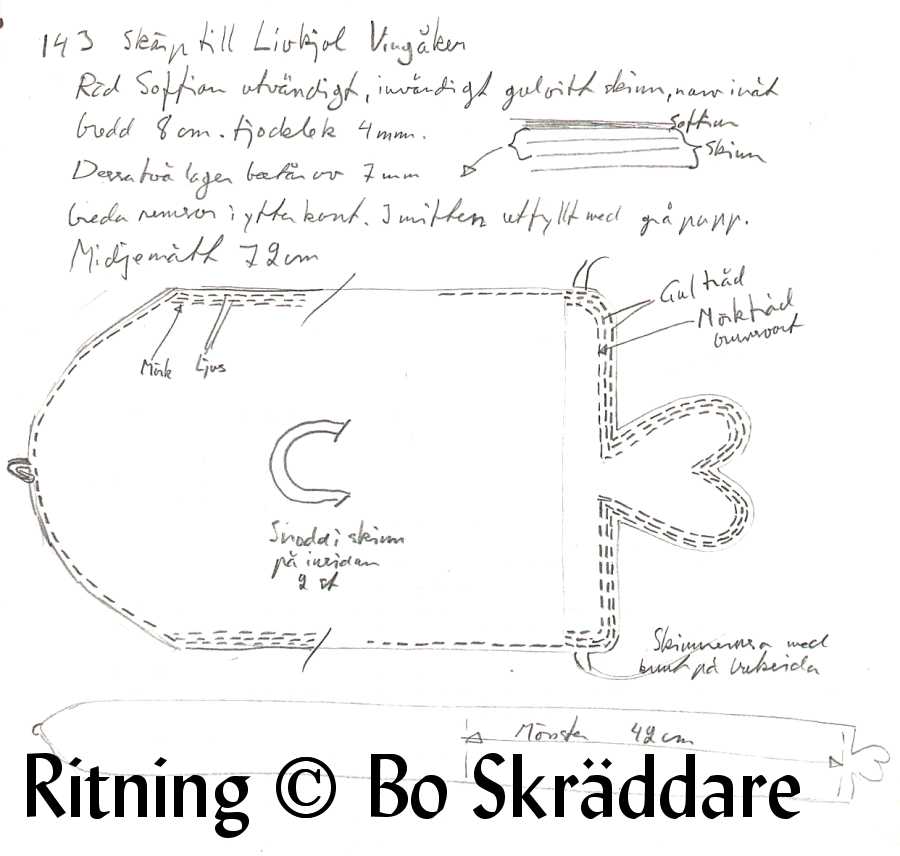 143 Skärp till Livkjol Vingåker
Röd Saffian utvändigt, invändigt gulvitt skinn, narv inåt
bredd 8 cm. tjocklek 4 mm.
Saffian
Skinn
Dessa två lager består av 7 mm
breda remsor i ytterkant. I mitten utfyllt med grå papp.
Midjemått 72 cm
Gul tråd
Mörk tråd
brunsvart
Mörk
Ljus
Snodd i skinn
på insidan
2 st
Skinnremsa med
knut på baksida
Mönster 42 cm
Ritning © Bo Skräddare